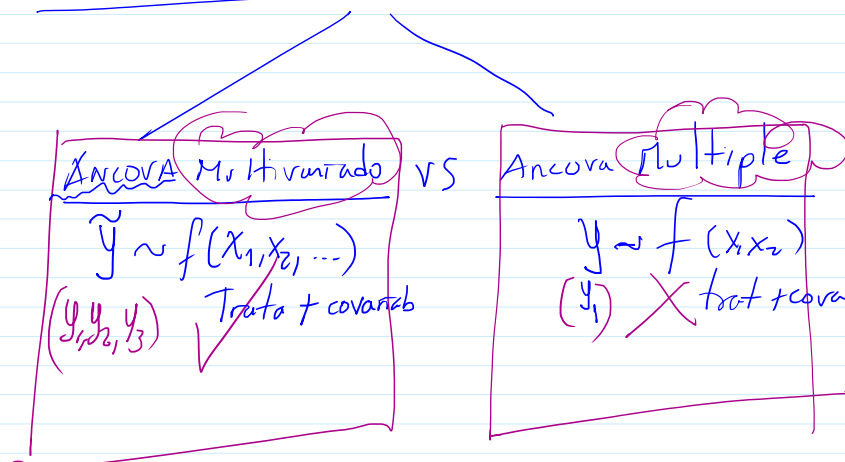 ANCOVA Multivariado VS Ancova Multiple
ỹ ~ f(x₁,x₂, ...)
Trata + covariab
(y₁,y₂,y₃)
y ~ f(x₁x₂)
(y₁) trat + cova